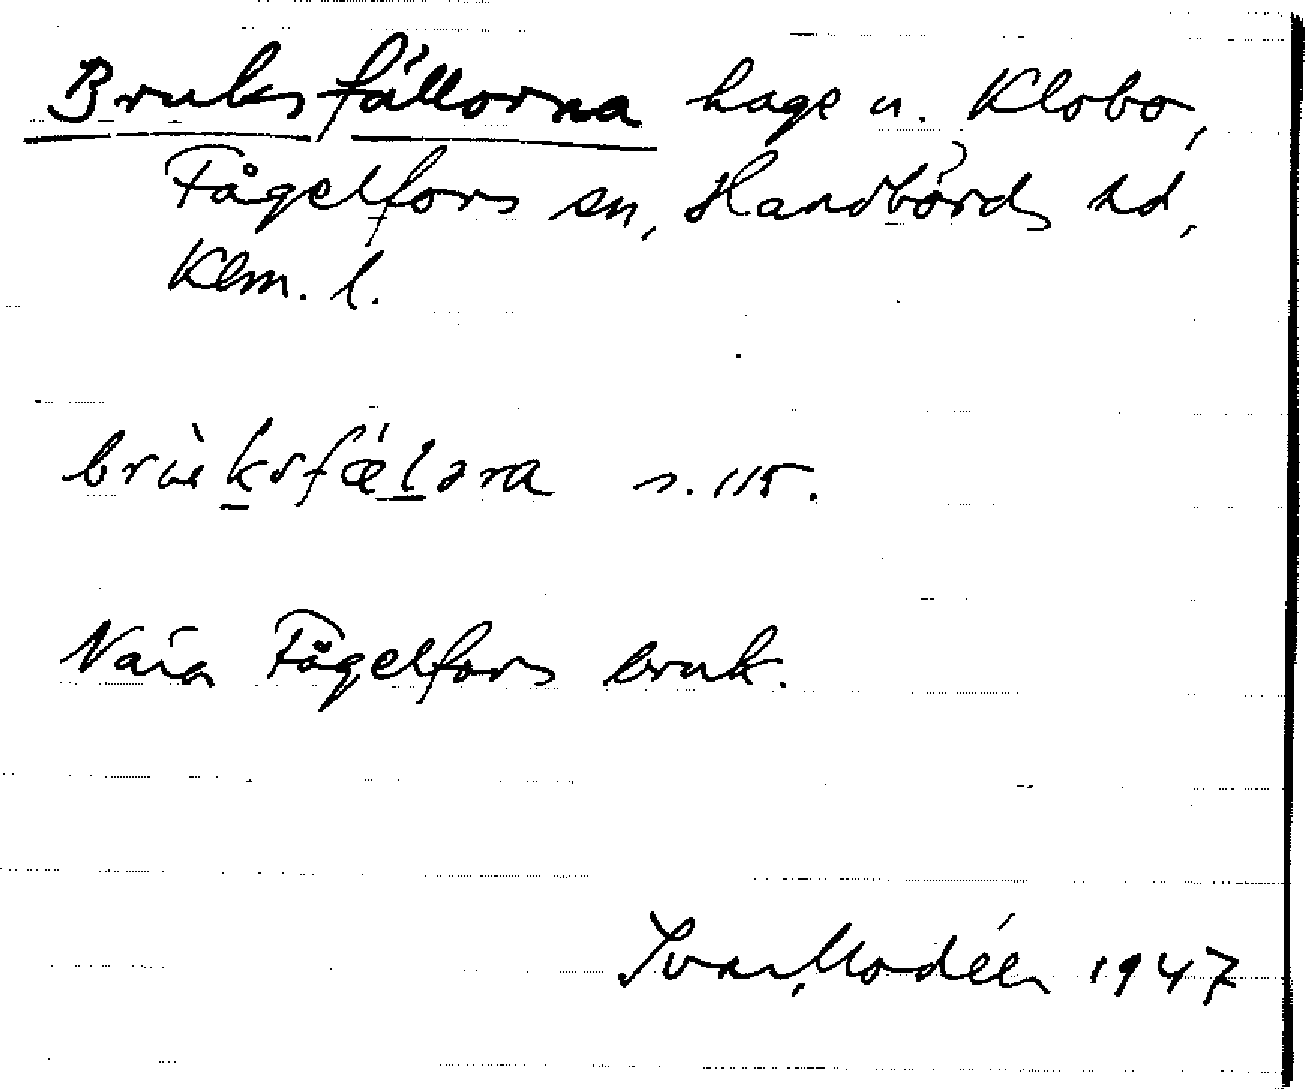 Bruksfällorna hage u. Klobo,
Fågelfors sn, Handbörds hd,
Klm. l.
brùksfǽlara s. 115.
Nära Fågelfors bruk.
Ivar Modéer 1947